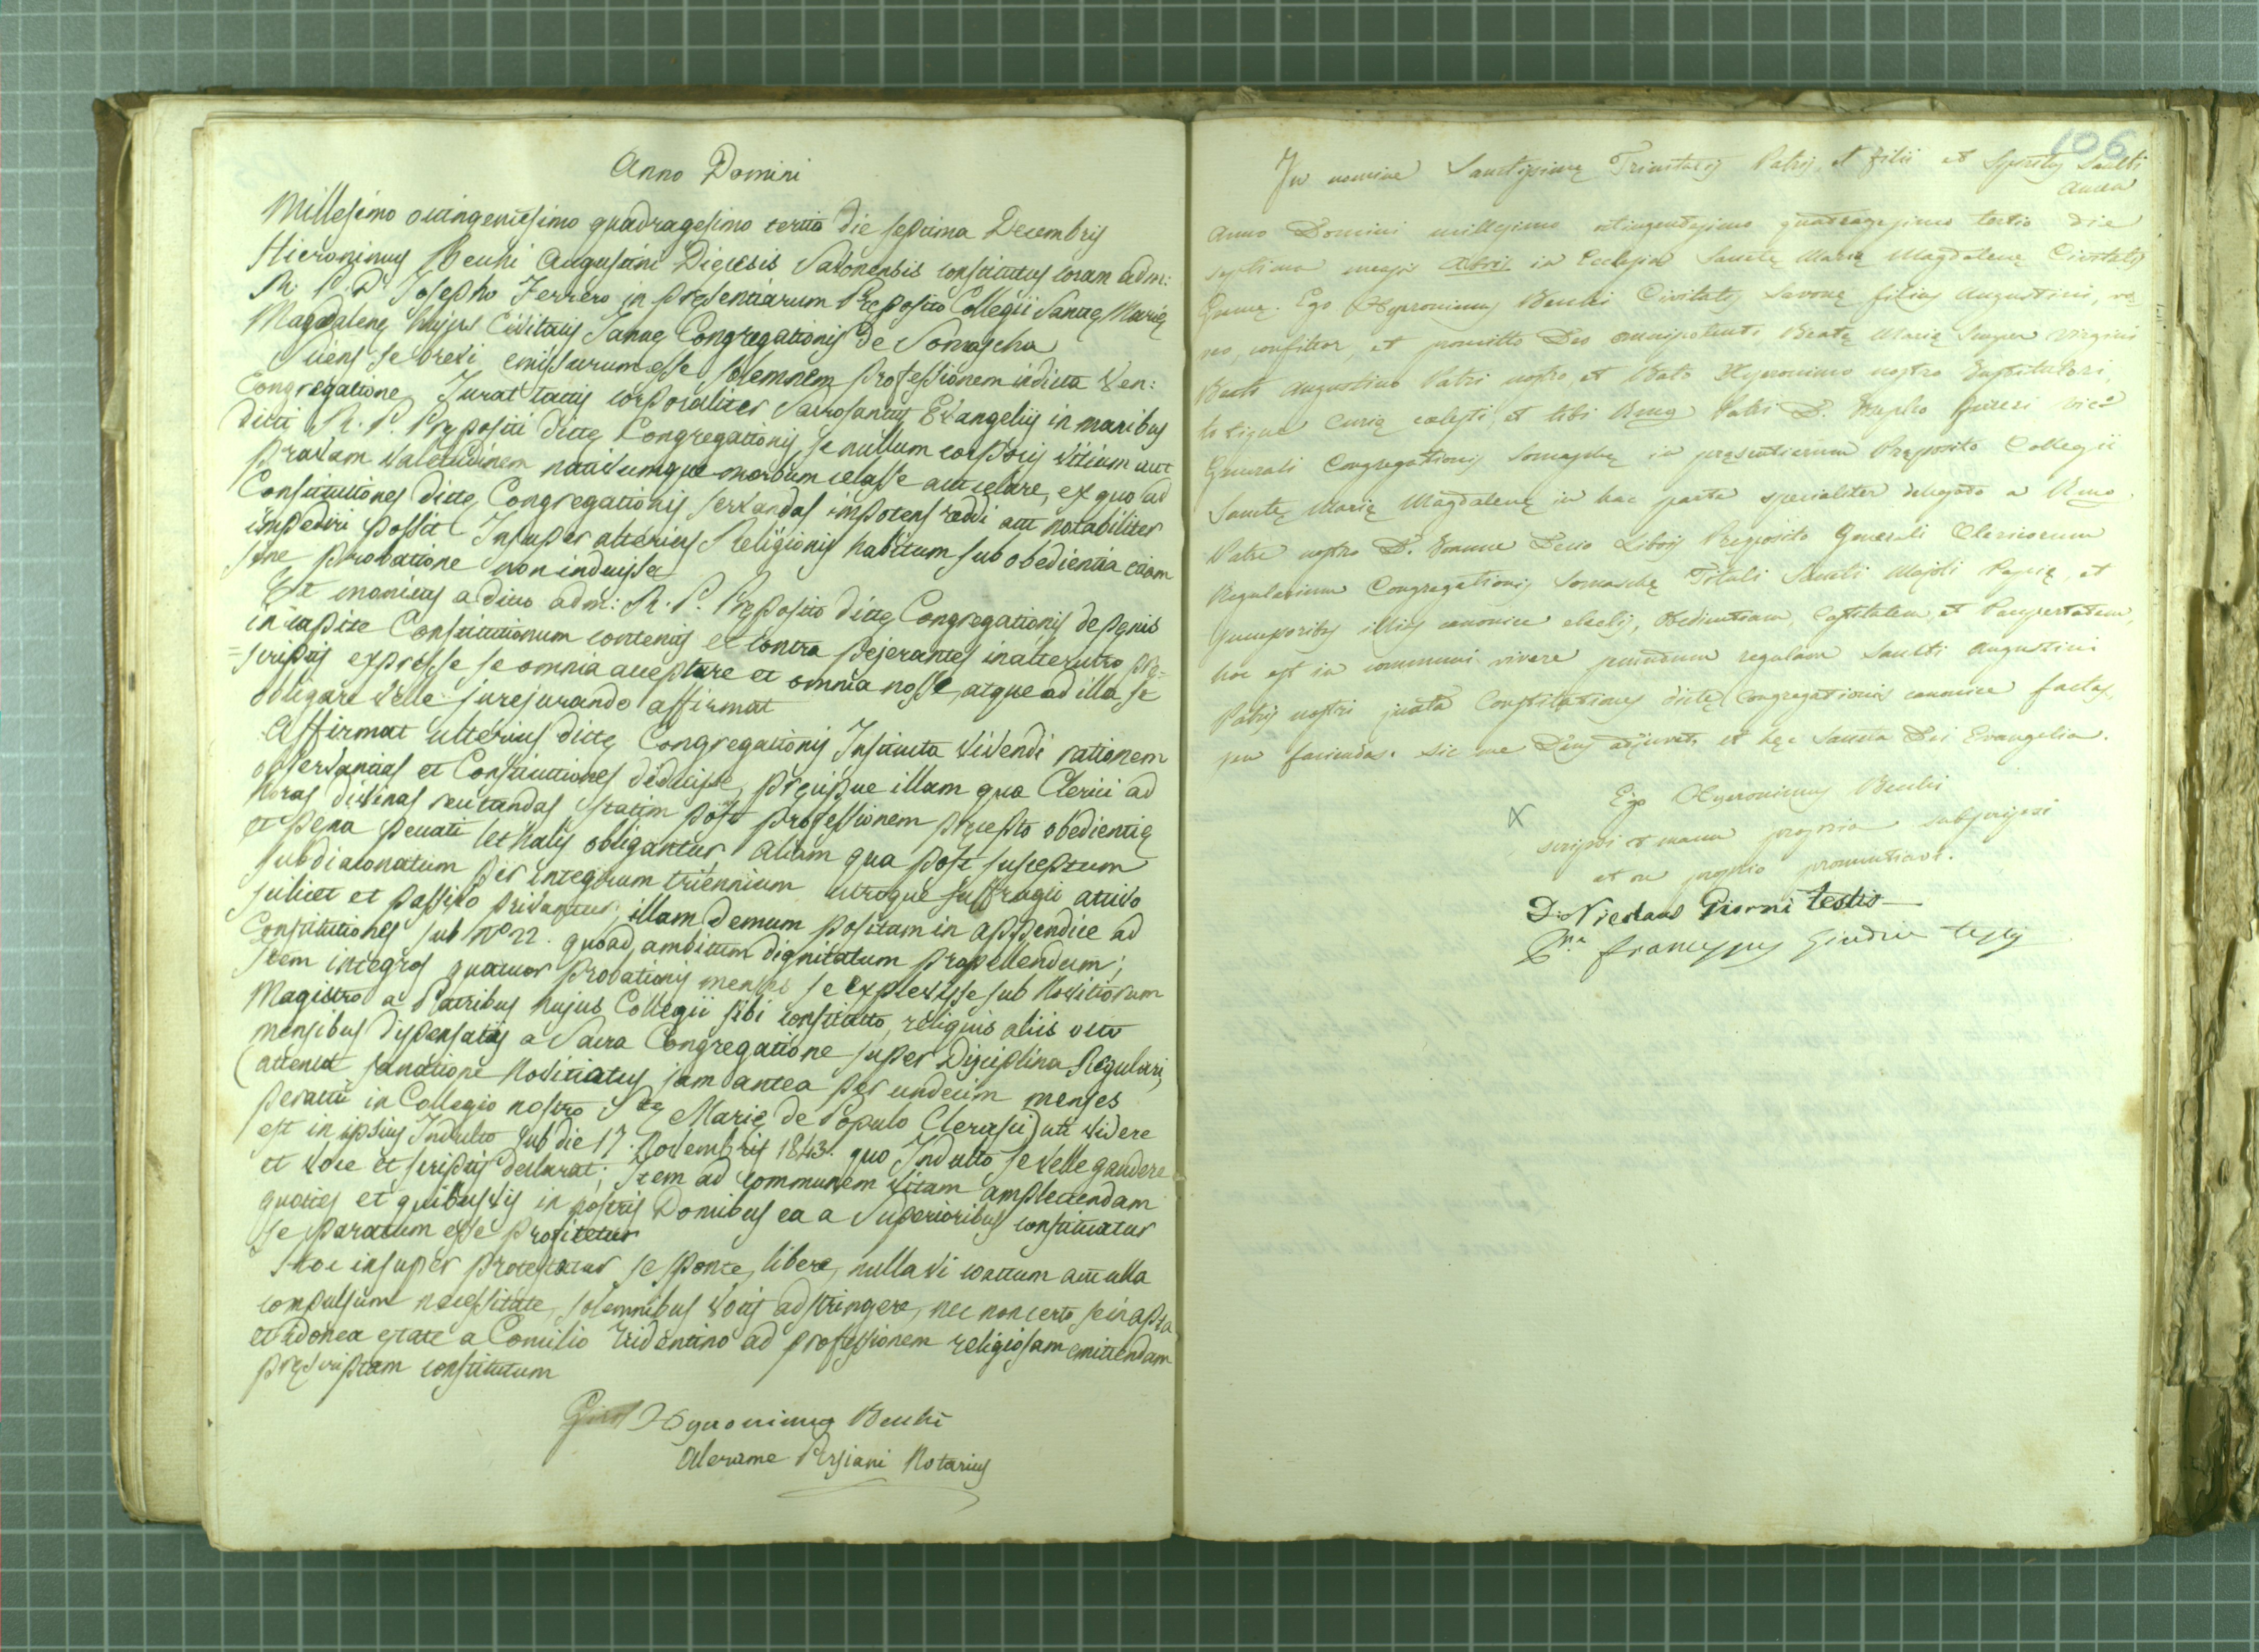 Anno Domini
Millesimo octingentesimo quadragesimo tertio die septima Decembris
Hieronimus Beuhi Augustini Dięcesis Savonensis constitutus coram adm:
R. P. D. Josepho Ferrero in presentiarum Pręposito Collegii Sanctę Marię
Magdalenę hujus Civitatis Januę Congregationis de Somascha
Sciens se brevi emissurum esse solemnem professionem in dicta Ven:
Congregatione, Jurat tactis corporaliter Sacrosanctis Evangeliis in manibus
dicti R. P. Prępositi dictę Congregationis, se nullum corporis vitium aut
pravam valetudinem nativumque morbum celasse aut celare, ex quo ad
Constitutiones dictę Congregationis servandas impotens reddi aut notabiliter
impediri possit Insuper alterius Religionis habitum sub obedientia etiam
sine probatione non induisse
Et monitus a dicto adm: R. P. Pręposito dictę Congregationis de pęnis
in capite Constitutionum contentis et contra pejerantes in alterutro prę=
=scriptis expresse se omnia acceptare et omnia nosse, atque ad illa se
obligare velle jurejurando affirmat
Affirmat ulterius dictę Congregationis Instituta vivendi rationem
observantias et Constitutiones didicisse, pręcipue illam qua Clerici ad
horas divinas recitandas statim post professionem pręcepto obedientię
et pęna peccati lethalis obligantur, aliam qua post susceptum
subdiaconatum per integrum triennium utroque suffragio activo
scilicet et passivo privantur, illam demum positam in appendice ad
Constitutiones sub No 22. quoad ambitum dignitatum propellendum;
Item integros quatuor probationis menses se explevisse sub Novitiorum
Magistro a Patribus hujus Collegii sibi constituto, reliquis aliis octo
mensibus dispensatis a Sacra Congregatione super Disciplina Regulari,
(attenta sanatione Novitiatus jam antea per undecim menses
peracti in Collegio nostro S.tę Marię de Populo Cherasci) uti videre
est in ipsius Indulto sub die 17. Novembris 1843. quo Indulto se velle gaudere
et voce et scriptis declarat; Item ad communem vitam amplectendam
quoties et quibusvis in nostris Domibus ea a Superioribus constituatur
se paratum esse profitetur
Hoc insuper protestatur se sponte, libere, nulla vi coactum aut ulla
compulsum necessitate, solemnibus votis adstringere, nec non certo se in apta
et idonea ętate a Concilio Tridentino ad professionem religiosam emittendam
pręscriptam constitutum
Hyeronimus Beuhi
Alerame Persiani Notarius
106
In nomine Sanctissimę Trinitatis Patris, et filii et Spiritus Sancti
Amen
Anno Domini millesimo octingentesimo quadragesimo tertio die
septima mensis Xbris in Ecclesia Sanctę Marię Magdalenę Civitatis
Genuę. Ego Hyeronimus Beuhi Civitatis Savonę filius Augustini, vo
veo, confiteor, et promitto Deo omnipotenti, Beatę Marię Semper Virgini
Beato Augustino Patri nostro, et Beato Hyeronimo nostro Institutori,
totique Curię cœlesti, et tibi Rmo Patri D. Josepho Ferreri Vico
Generali Congregationis Somaschę in pręsentiarum Pręposito Collegii
Sanctę Marię Magdalenę in hac parte specialiter delegato a Rmo
Patre nostro D. Joanne Decio Libois Pręposito Generali Clericorum
Regularium Congregationis Somaschę Tituli Sancti Majoli Papię, et
successoribus illius canonice electis, Obedientiam, Castitatem, et Paupertatem,
hoc est in communi vivere secundum regulam Sancti Augustini
Patris nostri juxta Constitutiones dictę Congregationis canonice factas,
seu faciendas. Sic me Deus adjuvet, et hęc Sancta Dei Evangelia.
X Ego Hyeronimus Beuhi
scripsi et manu propria subscripsi
et ore proprio pronuntiavi.
D. Nicolaus Giorni testis
franciscus Giudice testis